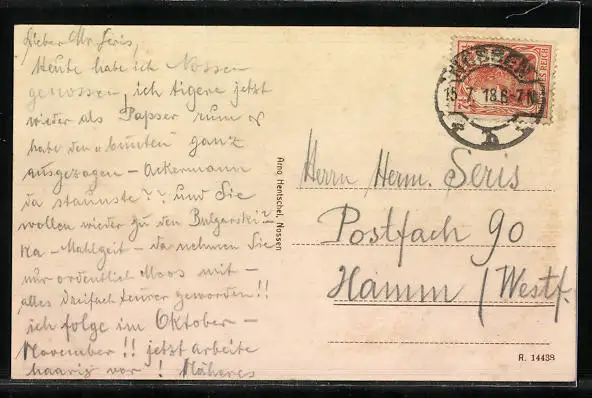 Lieber Mr Seris,
Heute habe ich Nossen
genossen, ich tigere jetzt
wieder als Papser rum &
habe den „bunten" ganz
ausgezogen – Ackermann
da staunste?? und Sie
wollen wieder zu den Bulgarski?
ka – Mahlzeit – da nehmen Sie
nur ordentlich Moos mit –
alles dreifach teurer geworden!!
ich folge im Oktober –
November!! jetzt arbeite
haarig vor! Näheres
Arno Hentschel, Nossen
NOSSEN
15.7.18.6-7N
DEUTSCHES REICH
Herrn Herm. Seris
Postfach 90
Hamm / Westf.
R. 14438